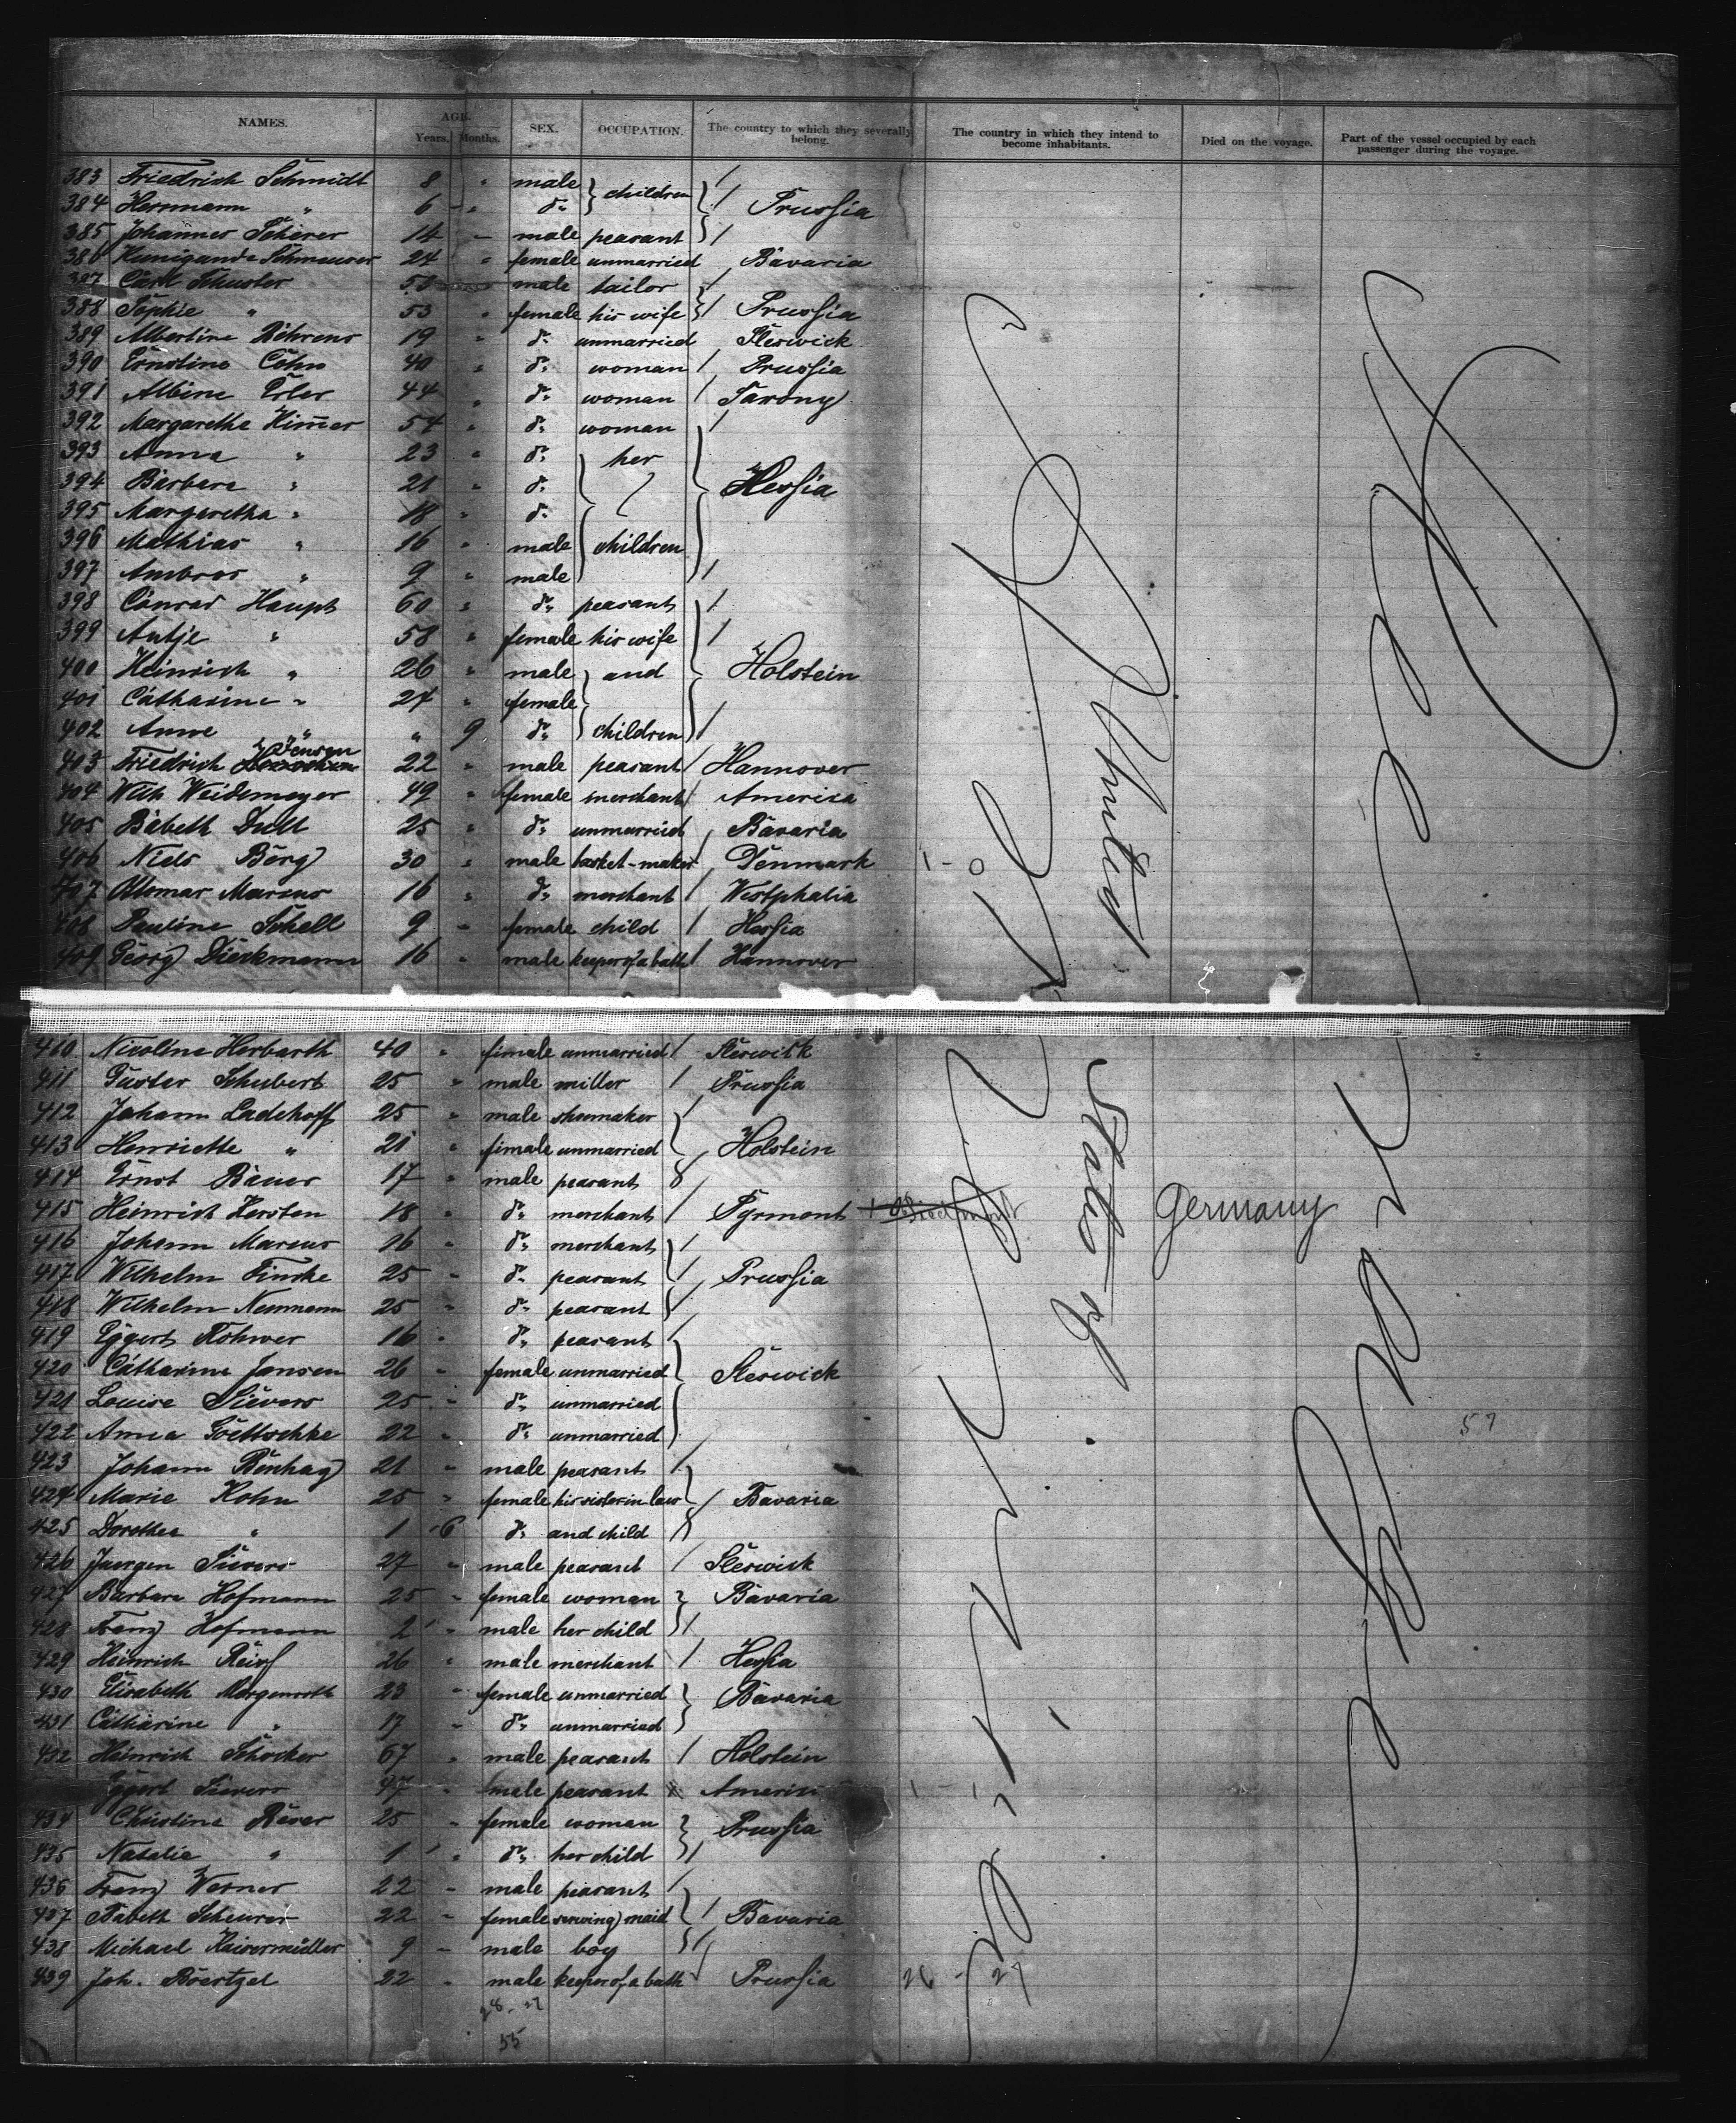 NAMES. AGE. Years. Months. SEX. OCCUPATION. The country to which they severally belong. The country in which they intend to become inhabitants. Died on the voyage. Part of the vessel occupied by each passenger during the voyage.
383 Friedrich Schmidt 8 " male } children /
384 Herrmann " 6 " do. / Prussia
385 Johannes Scherer 14 " male peasant /
386 Kunigunde 24 " female unmarried Bavaria
387 Carl Schuster male tailor /
388 Sophie " 53 " female his wife / Prussia
389 Albertine Behrens 19 " do. unmarried Sleswick
390 Ernstine Cohn 40 " do. woman / Prussia
391 Albine Erler 44 " do. woman / Saxony
392 Margarethe Himer 54 " do. woman /
393 Anna " 23 " do. her
394 Barbara " 21 " do. Hessia
395 Margaretha " 18 " do.
396 Mathias " 16 " male children
397 Ambros " 9 " male /
398 Conrad Haupt 60 " do. peasant /
399 Antje " 58 " female his wife /
400 Heinrich " 26 " male and Holstein
401 Catharine " 24 " female
402 Anne " " 9 do. children /
403 Friedrich Jensen 22 " male peasant / Hannover
404 Wilh Weidemeyer 49 " female merchant / America
405 Babeth Dull 25 " do. unmarried / Bavaria
406 Niels Berg 30 " male basket-maker / Denmark 1-0
407 Othmar Marcus 16 " do. merchant / Westphalia
408 Pauline Schell 9 " female child / Hessia
409 Georg Dieckmann 16 " male keeper of a bath / Hannover
United
410 Nicoline Herbarth 40 " female unmarried / Sleswick
411 Gustav Schubert 25 " male miller / Prussia
412 Johann Ladehoff 25 " male shoemaker /
413 Henriette " 21 " female unmarried / Holstein
414 Ernst Bauer 17 " male peasant
415 Heinrich Kersten 18 " do. merchant / Pyrmont Germany
416 Johann Marcus 16 " do. merchant /
417 Wilhelm Fincke 25 " do. peasant / Prussia
418 Wilhelm Neumann 25 " do. peasant /
419 Eggert Rohwer 16 " do. peasant /
420 Catharine Jansen 26 " female unmarried Sleswick
421 Louise Sievers 25 " do. unmarried
422 Anna Goettschke 22 " do. unmarried 57
423 Johann 21 " male peasant /
424 Marie Hohn 25 " female his sister in law / Bavaria
425 Dorothea " 1 6 do. and child /
426 Juergen Sievers 27 " male peasant / Sleswick
427 Barbara Hofmann 25 " female woman Bavaria
428 Franz Hofmann 2 " male her child /
429 Heinrich Reiss 26 " male merchant / Hessia
430 Elisabeth Morgenroth 23 " female unmarried Bavaria
431 Catharine " 17 " do. unmarried
432 Heinrich Schocker 67 " male peasant / Holstein
Eggert Sievers 47 " male peasant America 1 -
434 Christine 25 " female woman Prussia
435 Natalie " 1 " do. her child /
436 Franz Werner 22 " male peasant /
437 Babeth Scheurer 22 " female serving maid / Bavaria
438 Michael Kaisermüller 9 " male boy /
439 Joh. Boertzel 22 " male keeper of a bath / Prussia 26 - 27
States of
28 - 27
55